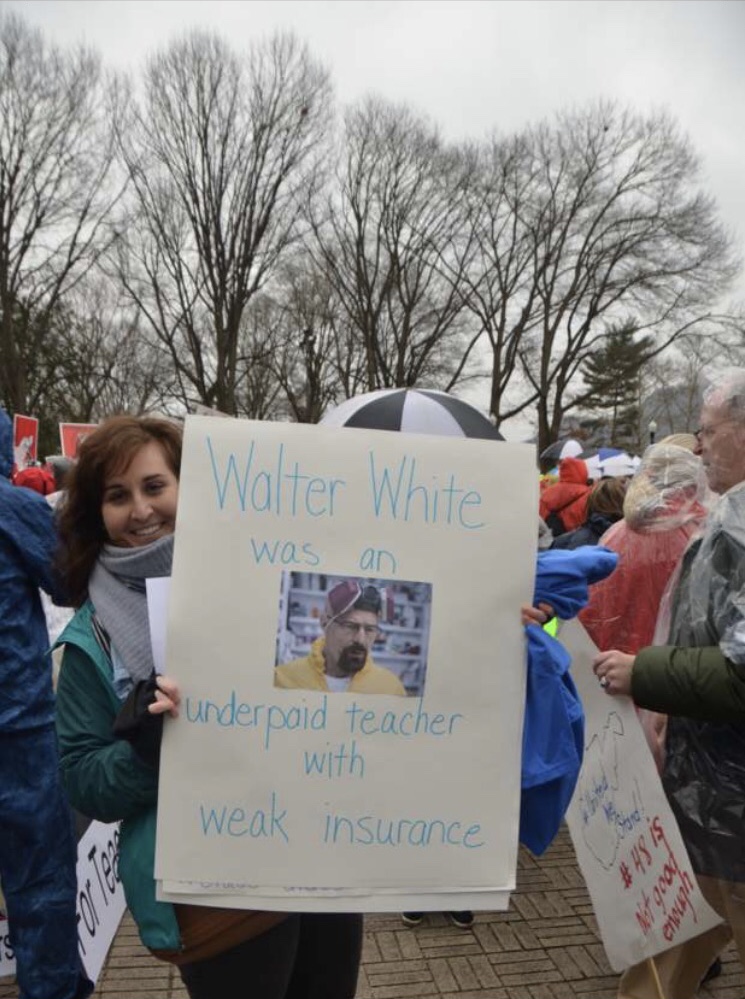 Walter White
was an
underpaid teacher
with
weak insurance
United
We
Stand!
#48 is
Not good
enough
For Tea